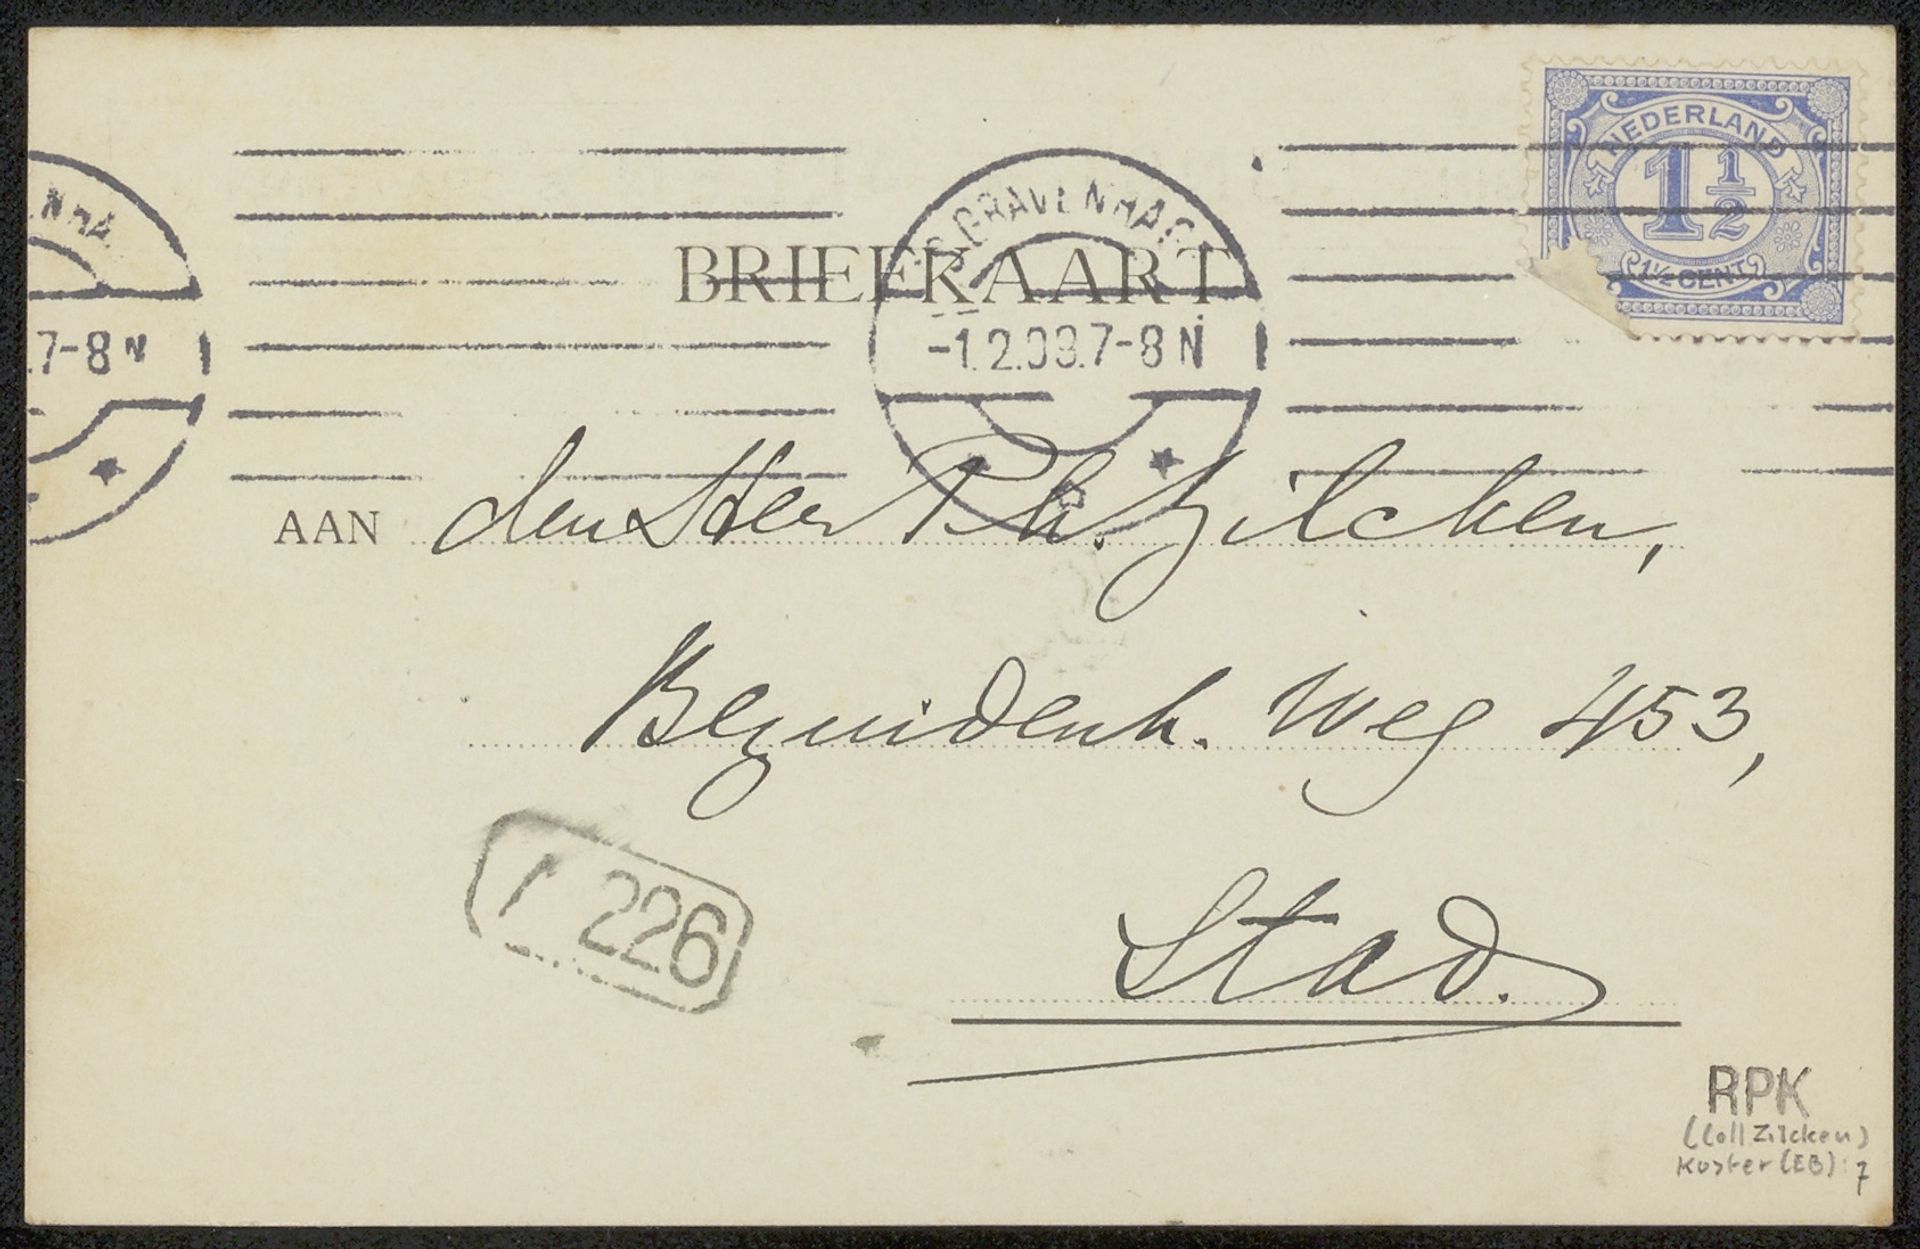 NEDERLAND
1 1/2
1 1/2 CENT
'S GRAVENHAGE
BRIEFKAART
7-8 N
-1.2.09.7-8 N
AAN den Heer Ph. Zilcken,
Bezuidenh. Weg 453,
Stad.
226
RPK
(Coll Zilcken)
Koster (EB): 7